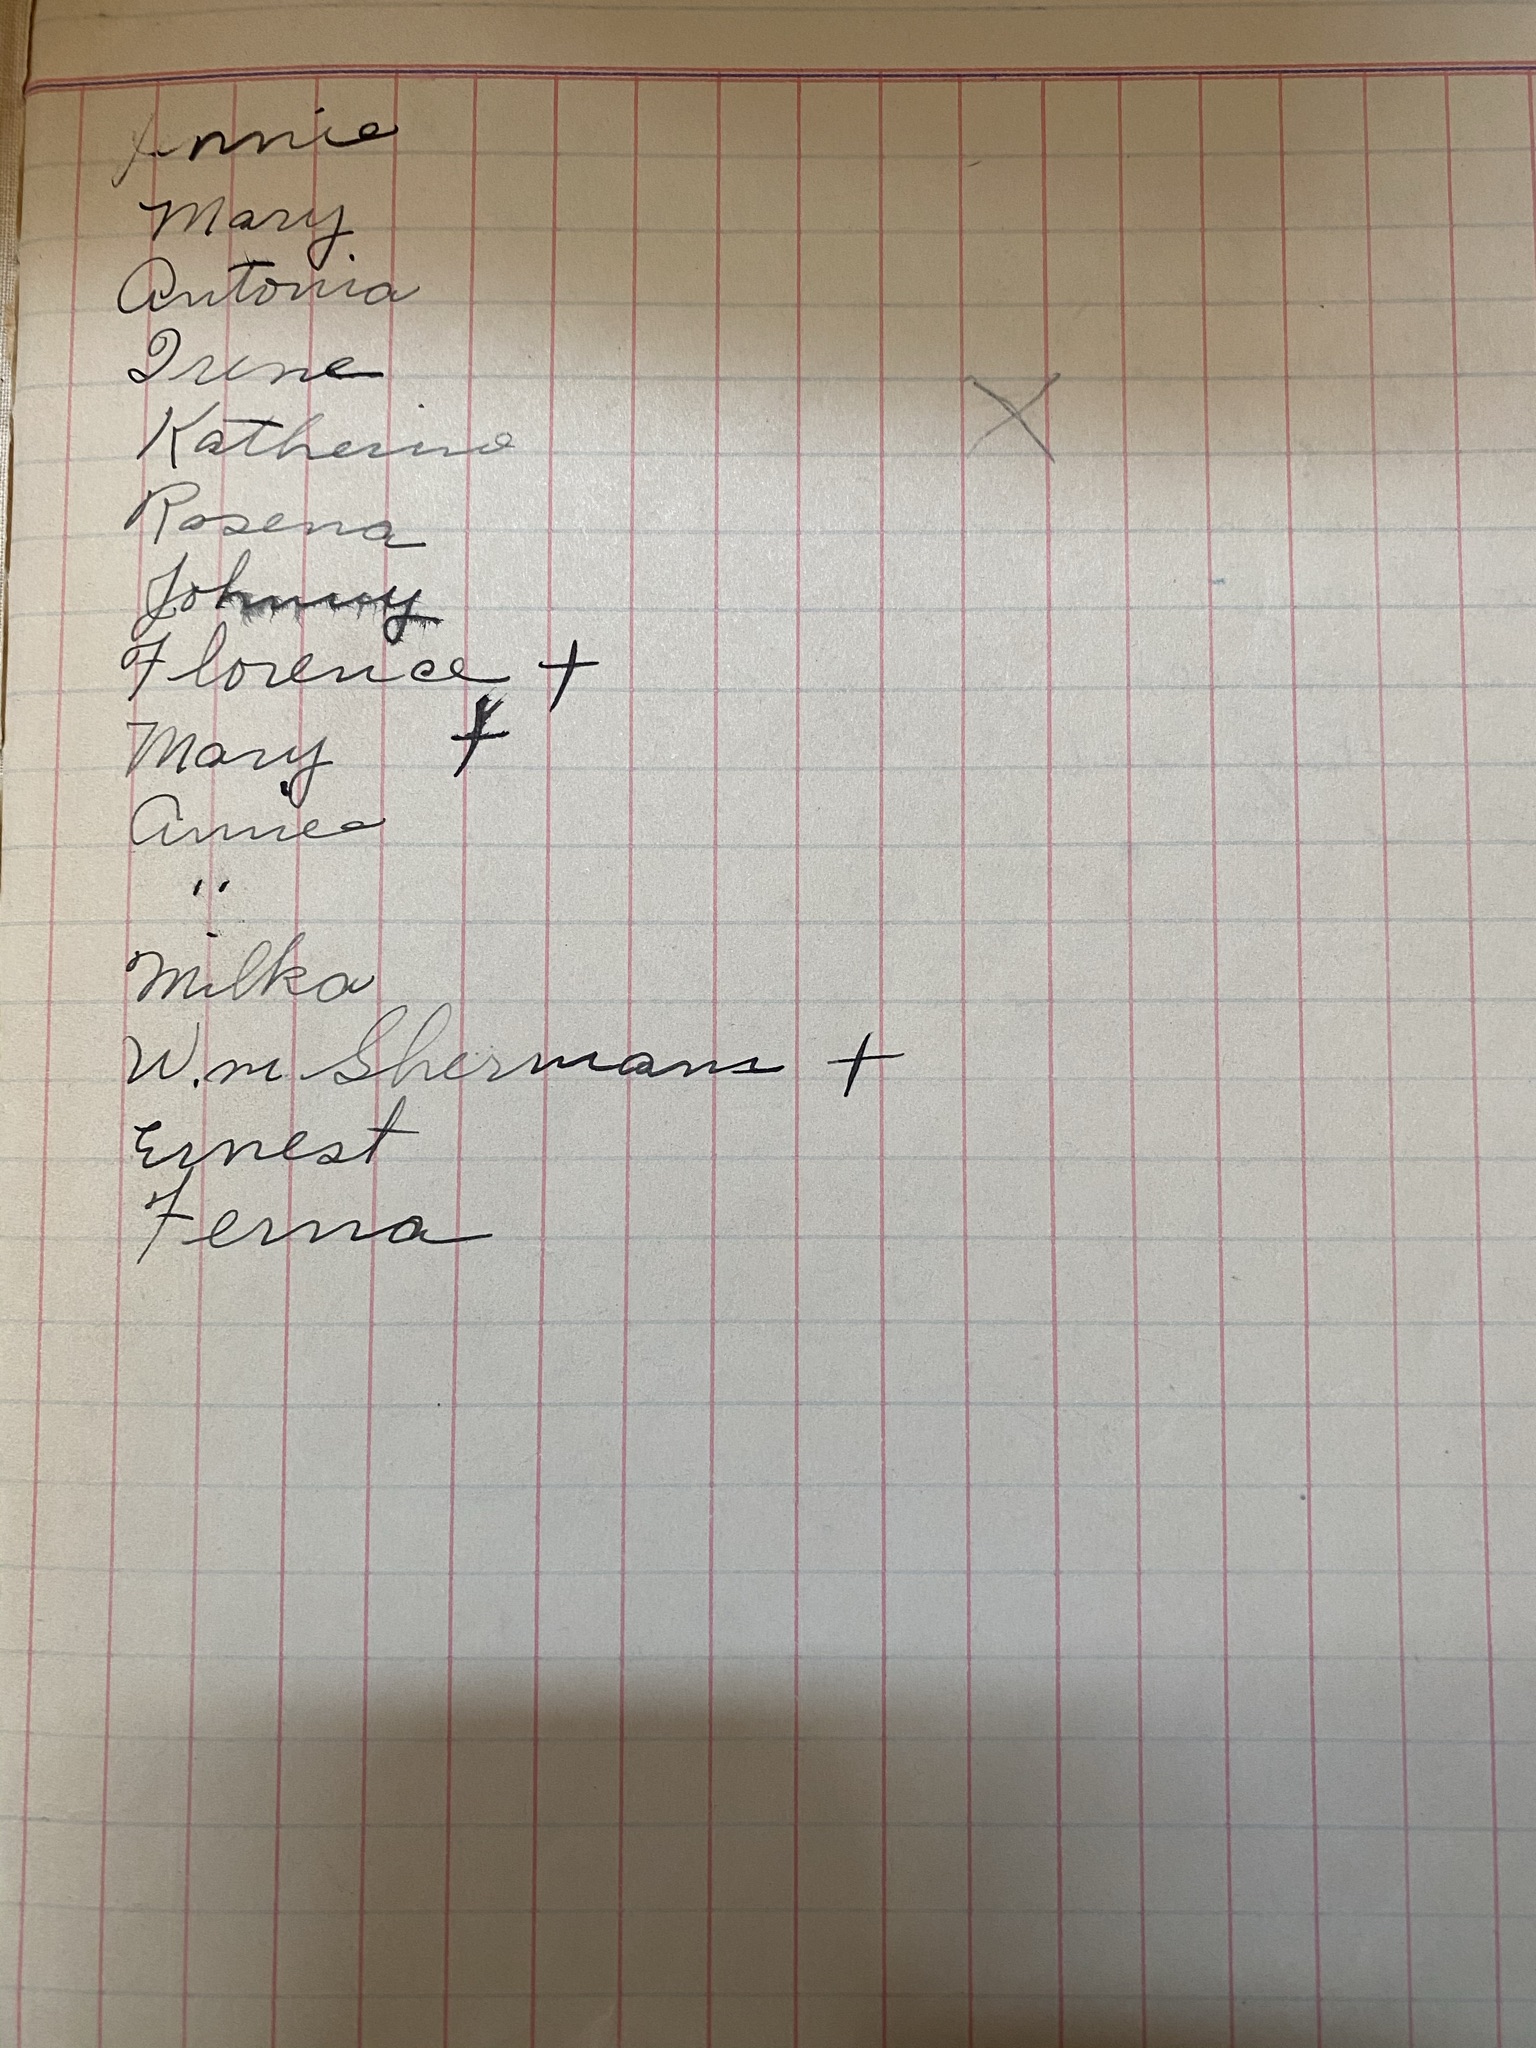 Annie
Mary
Antonia
Irene
Katherine
Rosena
Johnny
Florence +
Mary +
Annie
"
Milka
W.m Shermans +
Ernest
Ferna
X